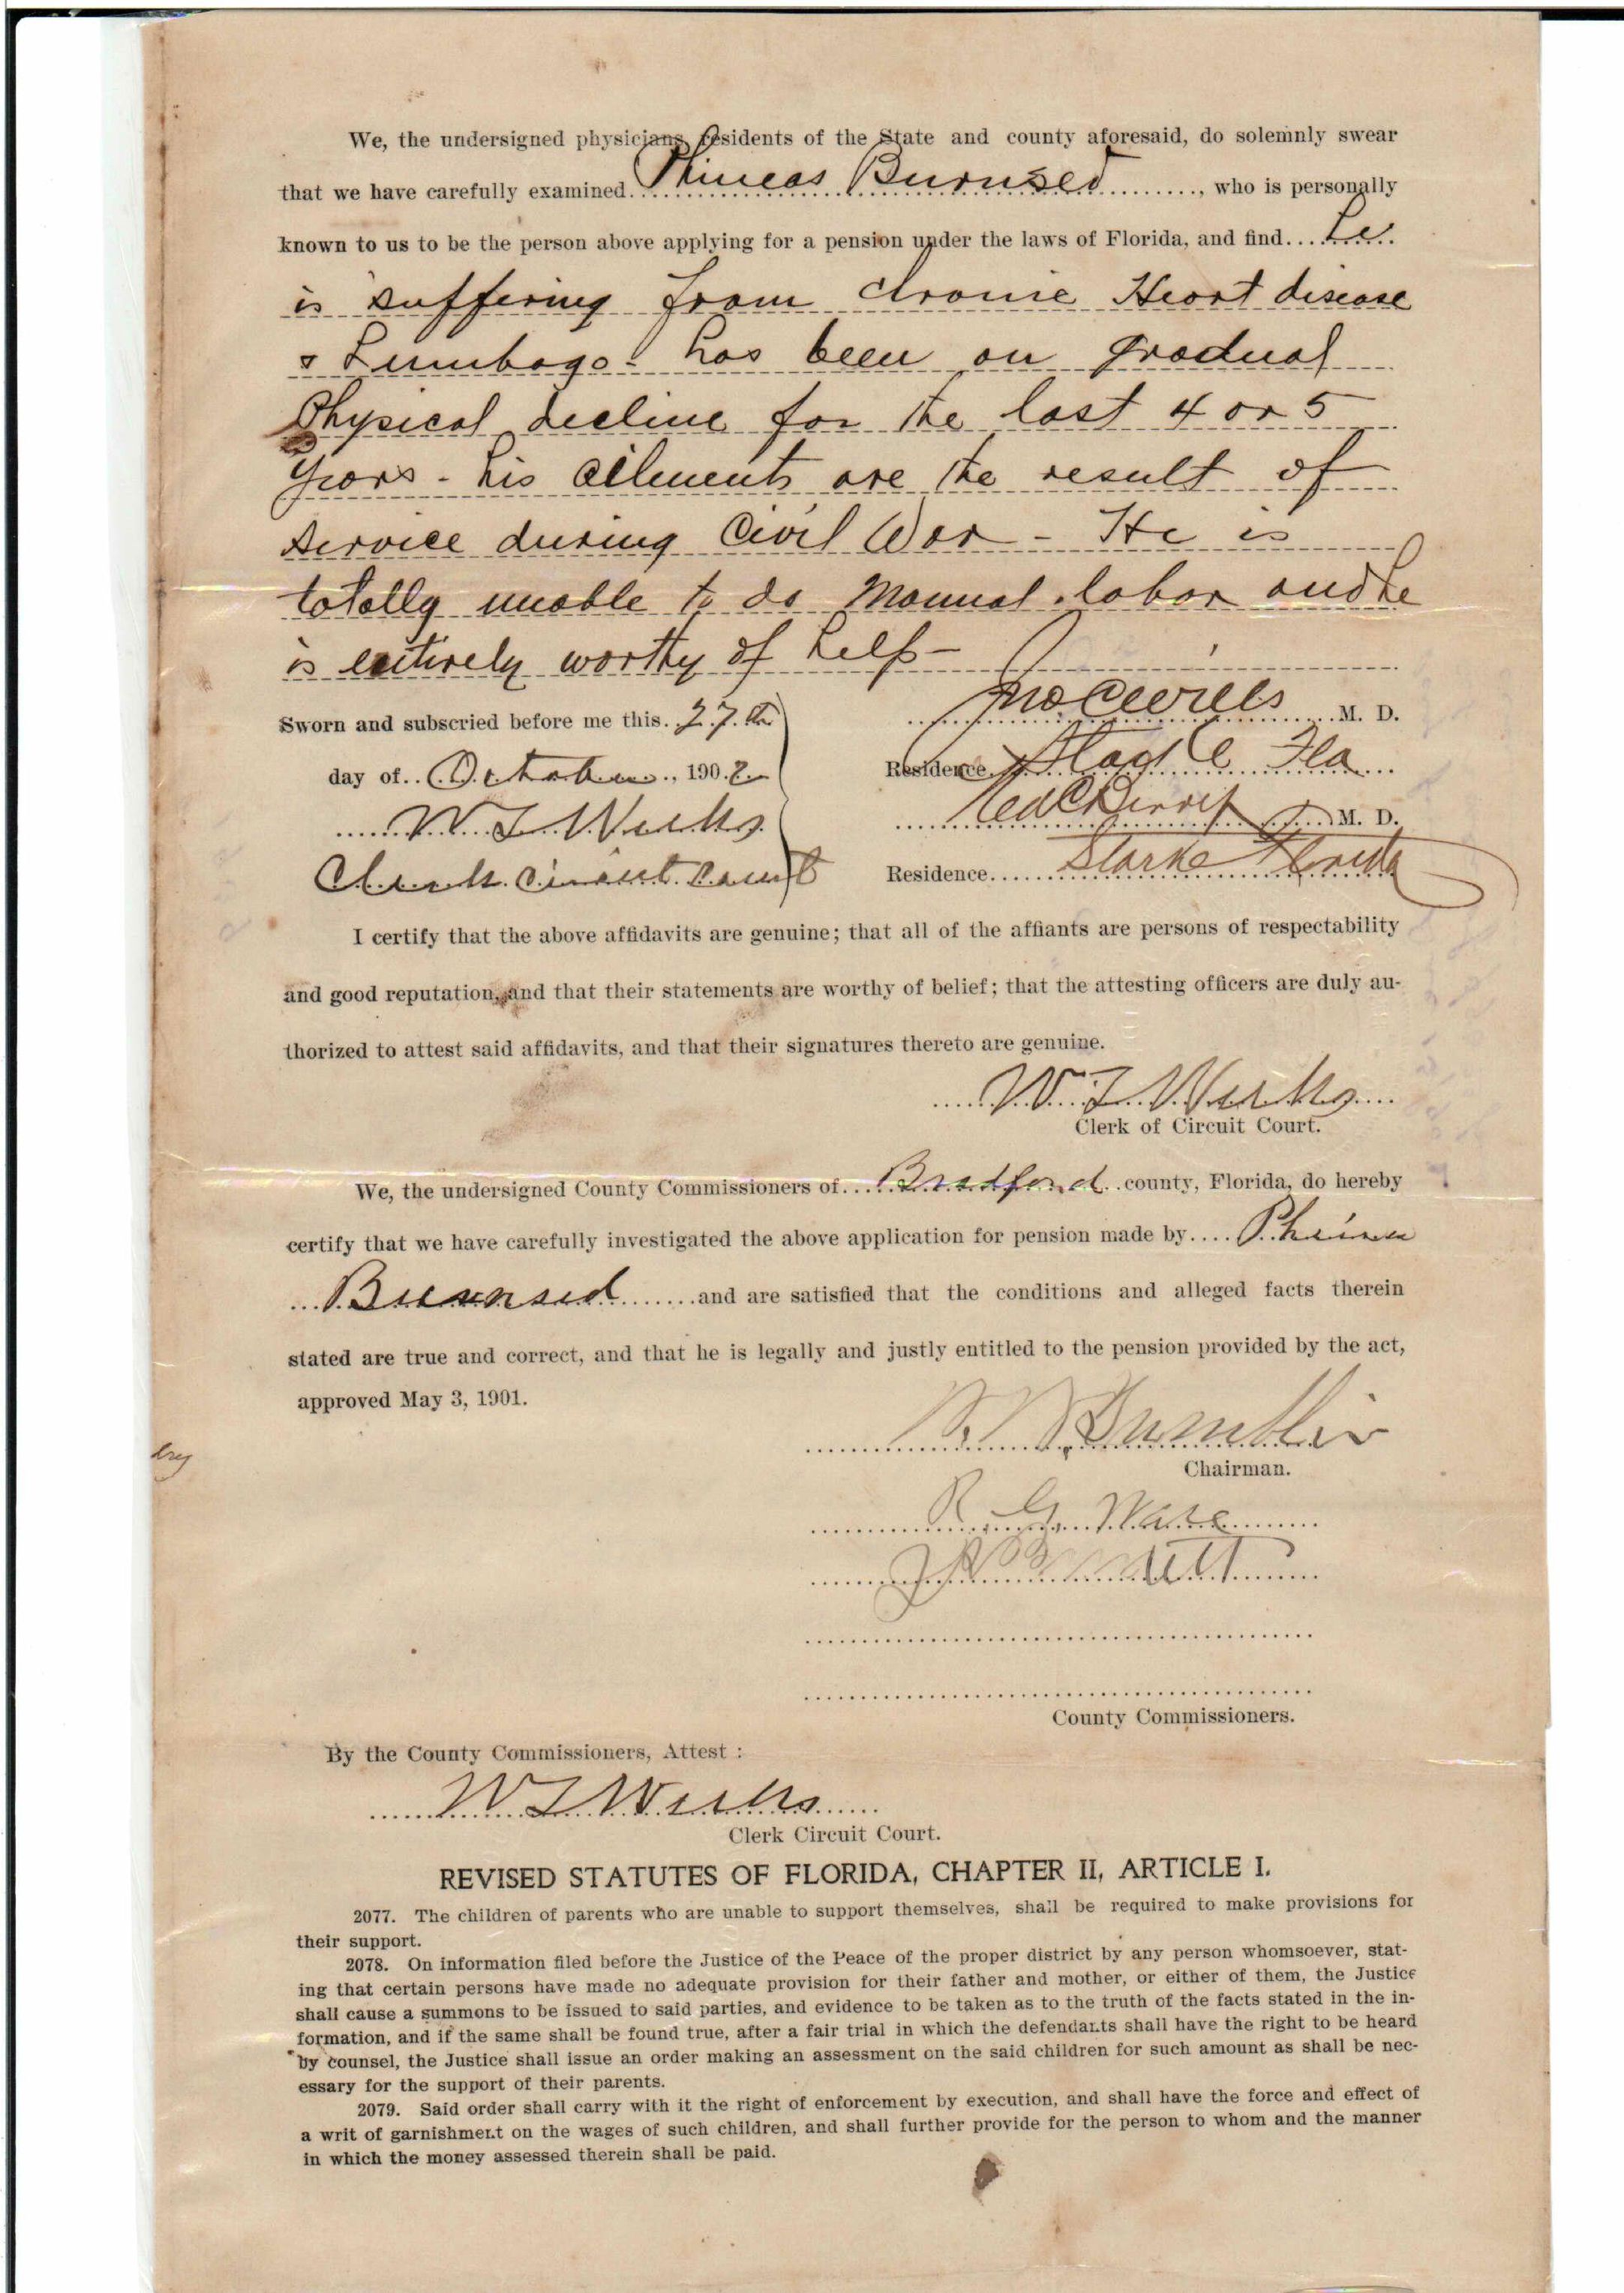 We, the undersigned physicians, residents of the State and county aforesaid, do solemnly swear
that we have carefully examined Phineas Burnsed, who is personally
known to us to be the person above applying for a pension under the laws of Florida, and find he
is suffering from chronic Heart disease
& Lumbago - has been on gradual
Physical decline for the last 4 or 5
years - his ailments are the result of
service during Civil War - He is
totally unable to do Manual labor and he
is entirely worthy of help -
Sworn and subscried before me this 27th
M. D.
day of October, 1902
Residence Fla
W. T. Weeks
M. D.
Clerk Circuit Court
Residence Starke Florida
I certify that the above affidavits are genuine; that all of the affiants are persons of respectability
and good reputation, and that their statements are worthy of belief; that the attesting officers are duly au-
thorized to attest said affidavits, and that their signatures thereto are genuine.
W. T. Weeks
Clerk of Circuit Court.
We, the undersigned County Commissioners of Bradford county, Florida, do hereby
certify that we have carefully investigated the above application for pension made by
Burnsed and are satisfied that the conditions and alleged facts therein
stated are true and correct, and that he is legally and justly entitled to the pension provided by the act,
approved May 3, 1901.
Chairman.
R. G. Ware
County Commissioners.
By the County Commissioners, Attest :
W T Weeks
Clerk Circuit Court.
REVISED STATUTES OF FLORIDA, CHAPTER II, ARTICLE I.
2077. The children of parents who are unable to support themselves, shall be required to make provisions for
their support.
2078. On information filed before the Justice of the Peace of the proper district by any person whomsoever, stat-
ing that certain persons have made no adequate provision for their father and mother, or either of them, the Justice
shall cause a summons to be issued to said parties, and evidence to be taken as to the truth of the facts stated in the in-
formation, and if the same shall be found true, after a fair trial in which the defendants shall have the right to be heard
by counsel, the Justice shall issue an order making an assessment on the said children for such amount as shall be nec-
essary for the support of their parents.
2079. Said order shall carry with it the right of enforcement by execution, and shall have the force and effect of
a writ of garnishment on the wages of such children, and shall further provide for the person to whom and the manner
in which the money assessed therein shall be paid.